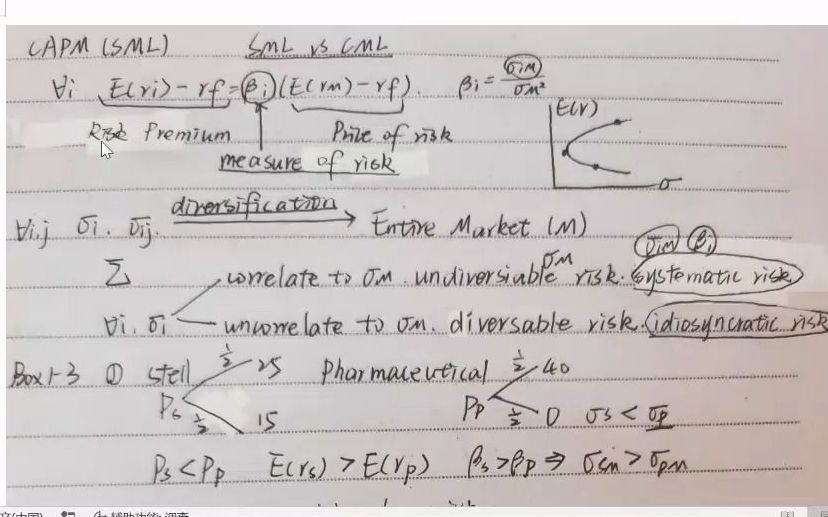 CAPM (SML) SML vs CML
∀i E(ri) - rf = βi (E(rm) - rf). βi = σiM / σM²
Risk Premium Prize of risk E(r)
measure of risk
σ
∀i.j σi. σij. diversification → Entire Market (M)
σiM βi
Σ correlate to σM. undiversiable σM risk. systematic risk
∀i. σi uncorrelate to σM. diversable risk. idiosyncratic risk
Box 1-3 ① stell 1/2 25 Pharmaceutical 1/2 40
Ps 1/2 15 Pp 1/2 0 σs < σp
Ps < Pp E(rs) > E(rp) βs > βp ⇒ σsm > σpm